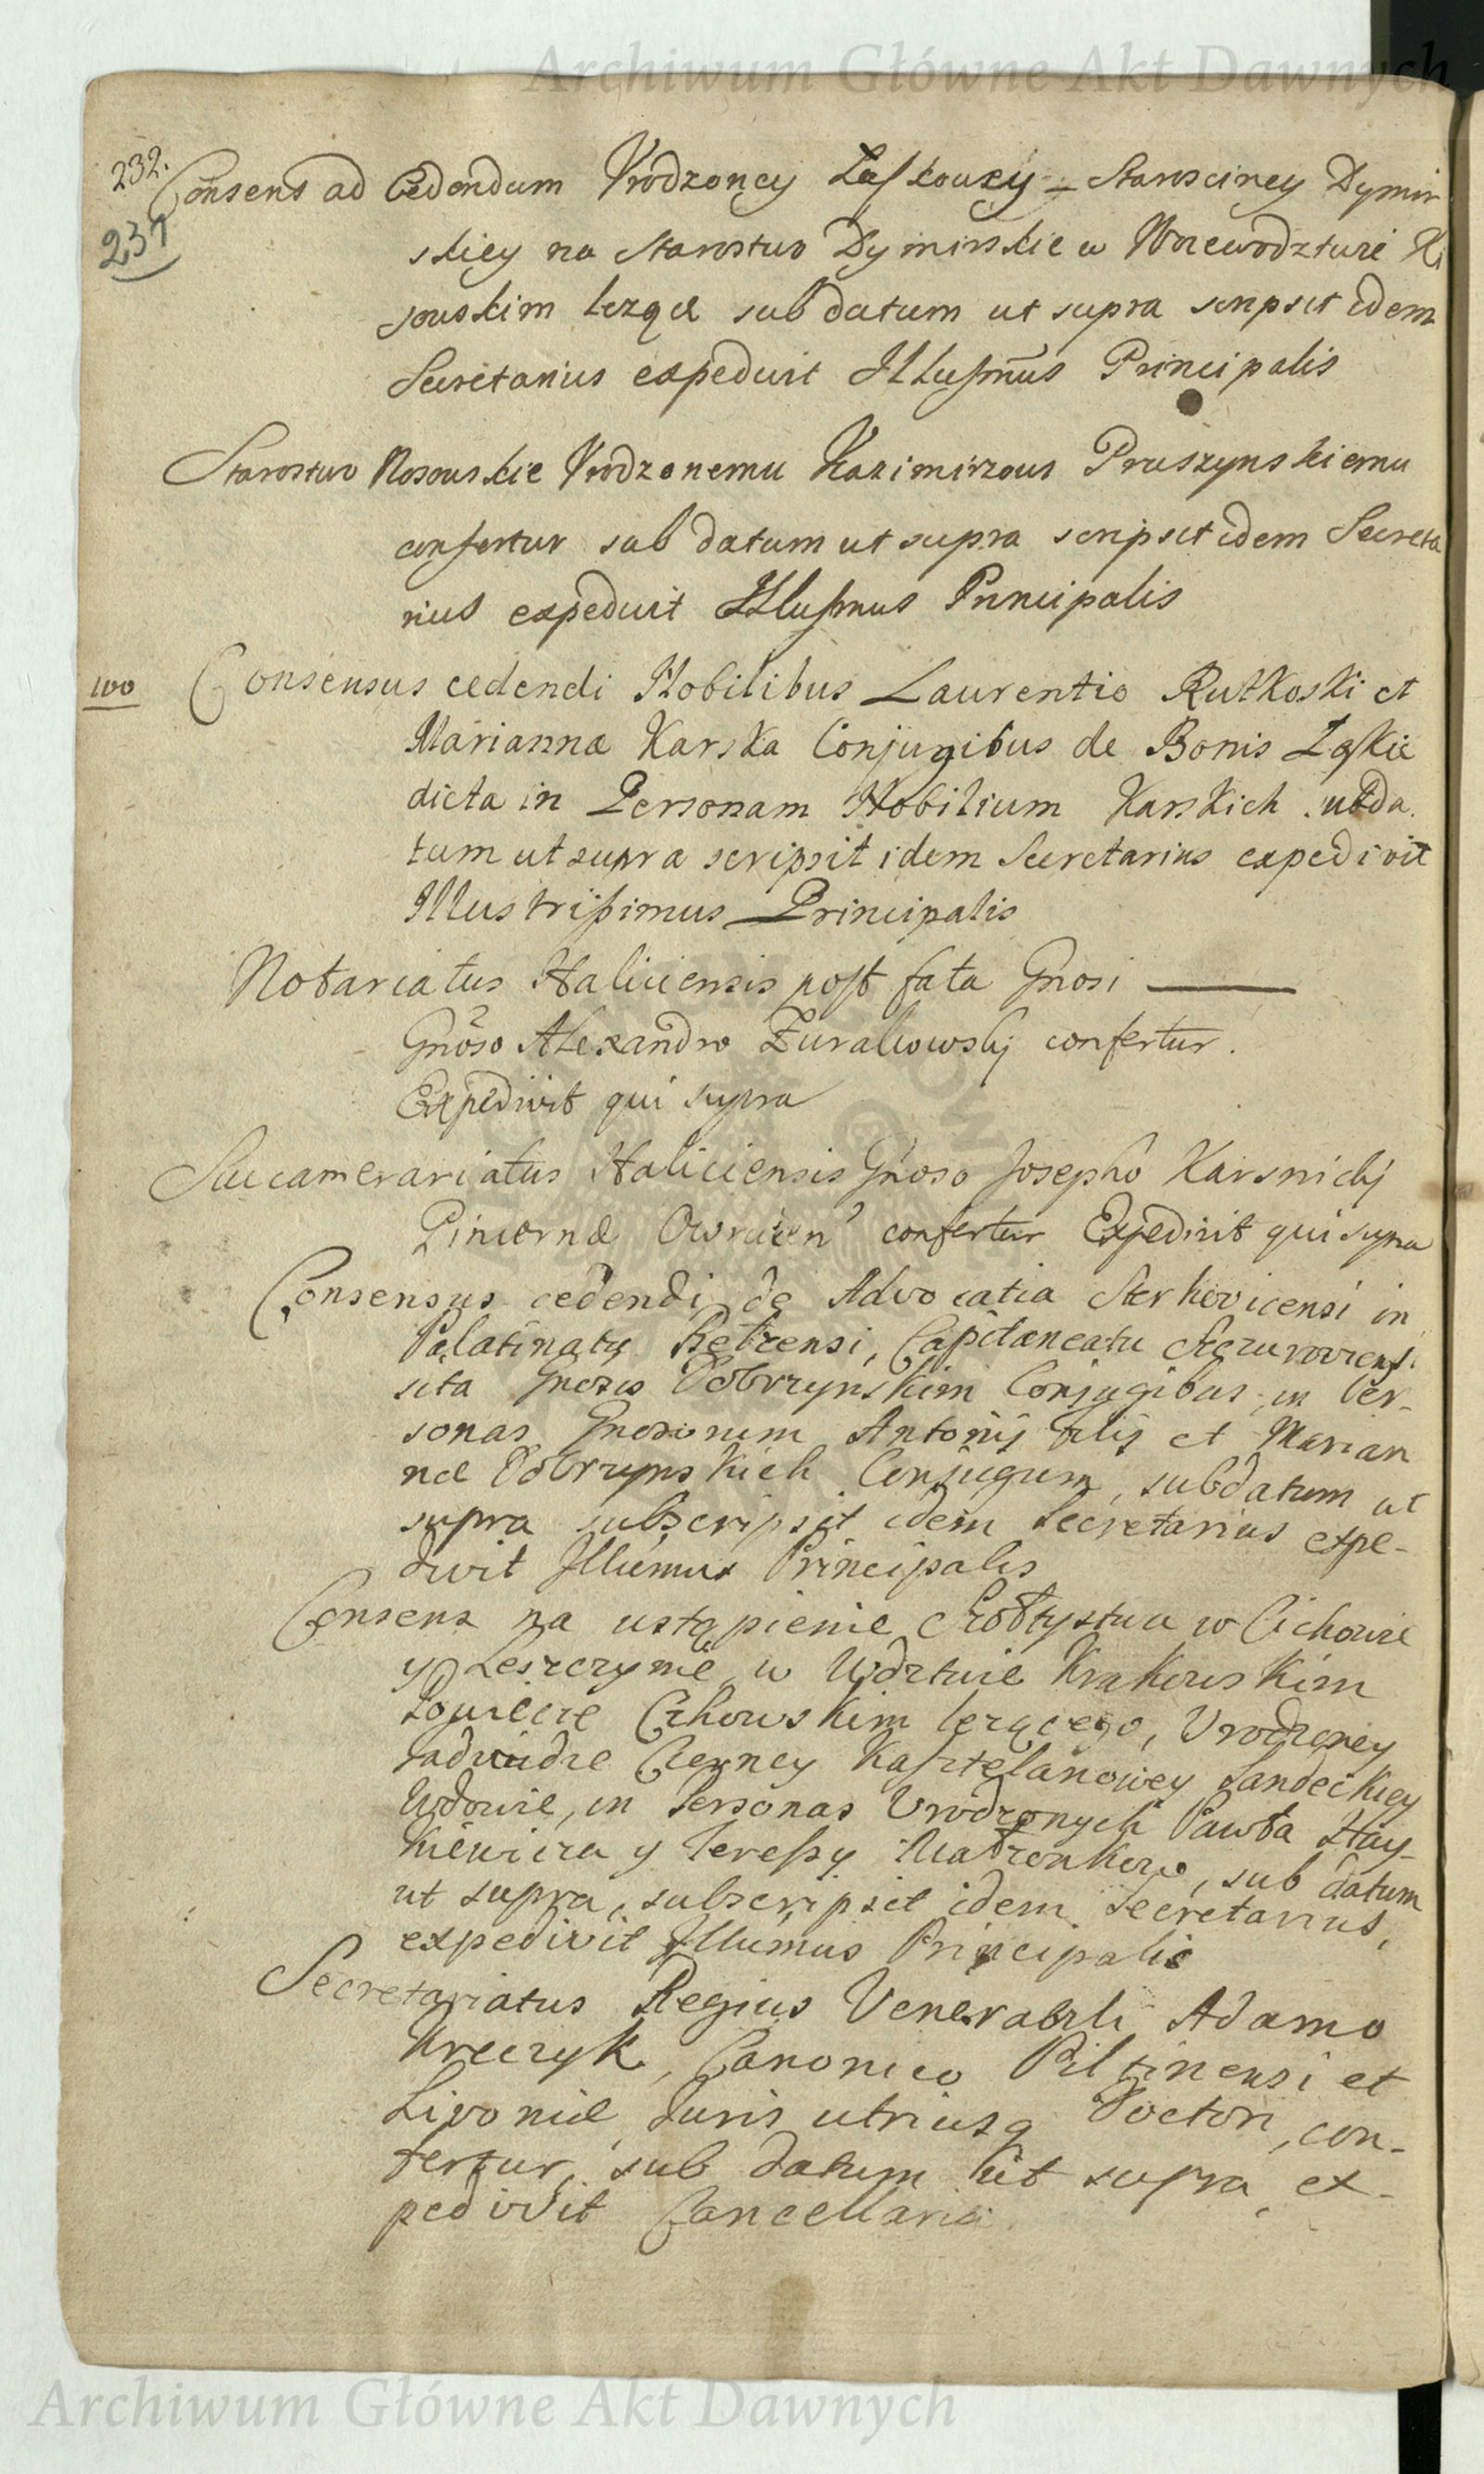 Archiwum Główne Akt Dawnych
232.
231
Consens ad Cedendum Vrodzoney Starosciney Dymir
skiey na Starostwo Dymirskie w Woiewodztwie Ki
jowskim lezące sub datum ut supra scripsit idem
Secretarius expedivit Illusmus Principalis
Starostwo Nosowskie Vrodzonemu Kazimirzowi Pruszynskiemu
confertur sub datum ut supra scripsit idem Secreta
rius expedivit Illusmus Principalis
100
Consensus cedendi Nobilibus Laurentio Rutkoski et
Marianna Karska Conjugibus de Bonis
dicta in Personam Nobilium Karskich sub da
tum ut supra scripsit idem Secretarius expedivit
Illustrissimus Principalis
Notariatus Haliciensis post fata Gnosi
Gnoso Alexandro Zurakowskj confertur.
Expedivit qui supra
Succamerariatus Haliciensis Gnoso Josepho Karsnickj
Pincernæ Owrucen confertur Expedivit qui supra
Consensus cedendi de Advocatia in
Palatinatu Belzensi, Capitaneatu
sita Gnosis Dobrzynskim Conjugibus, in Per-
sonas Gnosorum Antonij filij et Marian
næ Dobrzynskich Conjugum, sub datum ut
supra subscripsit idem Secretarius expe-
divit Illūmus Principalis
Consens na ustąpienie Szołtystwa w Cichowie
y Leszczynie w Wdztwie Krakowskim
Powiecie Czhowskim lezącego, Vrodzoney
Jadwidze Czerney Kasztelanowey Sandeckiey
Wdowie, in Personas Vrodzonych Pawła Hay-
kiewicza y Teressy Małzonkow, sub datum
ut supra, subscripsit idem Secretarius,
expedivit Illūmus Principalis
Secretariatus Regius Venerabili Adamo
Kreczyk, Canonico Piltinensi et
Livoniæ Juris utriusq Doctori, con-
fertur, sub datum ut supra, ex-
pedivit Cancellaria.
Archiwum Główne Akt Dawnych